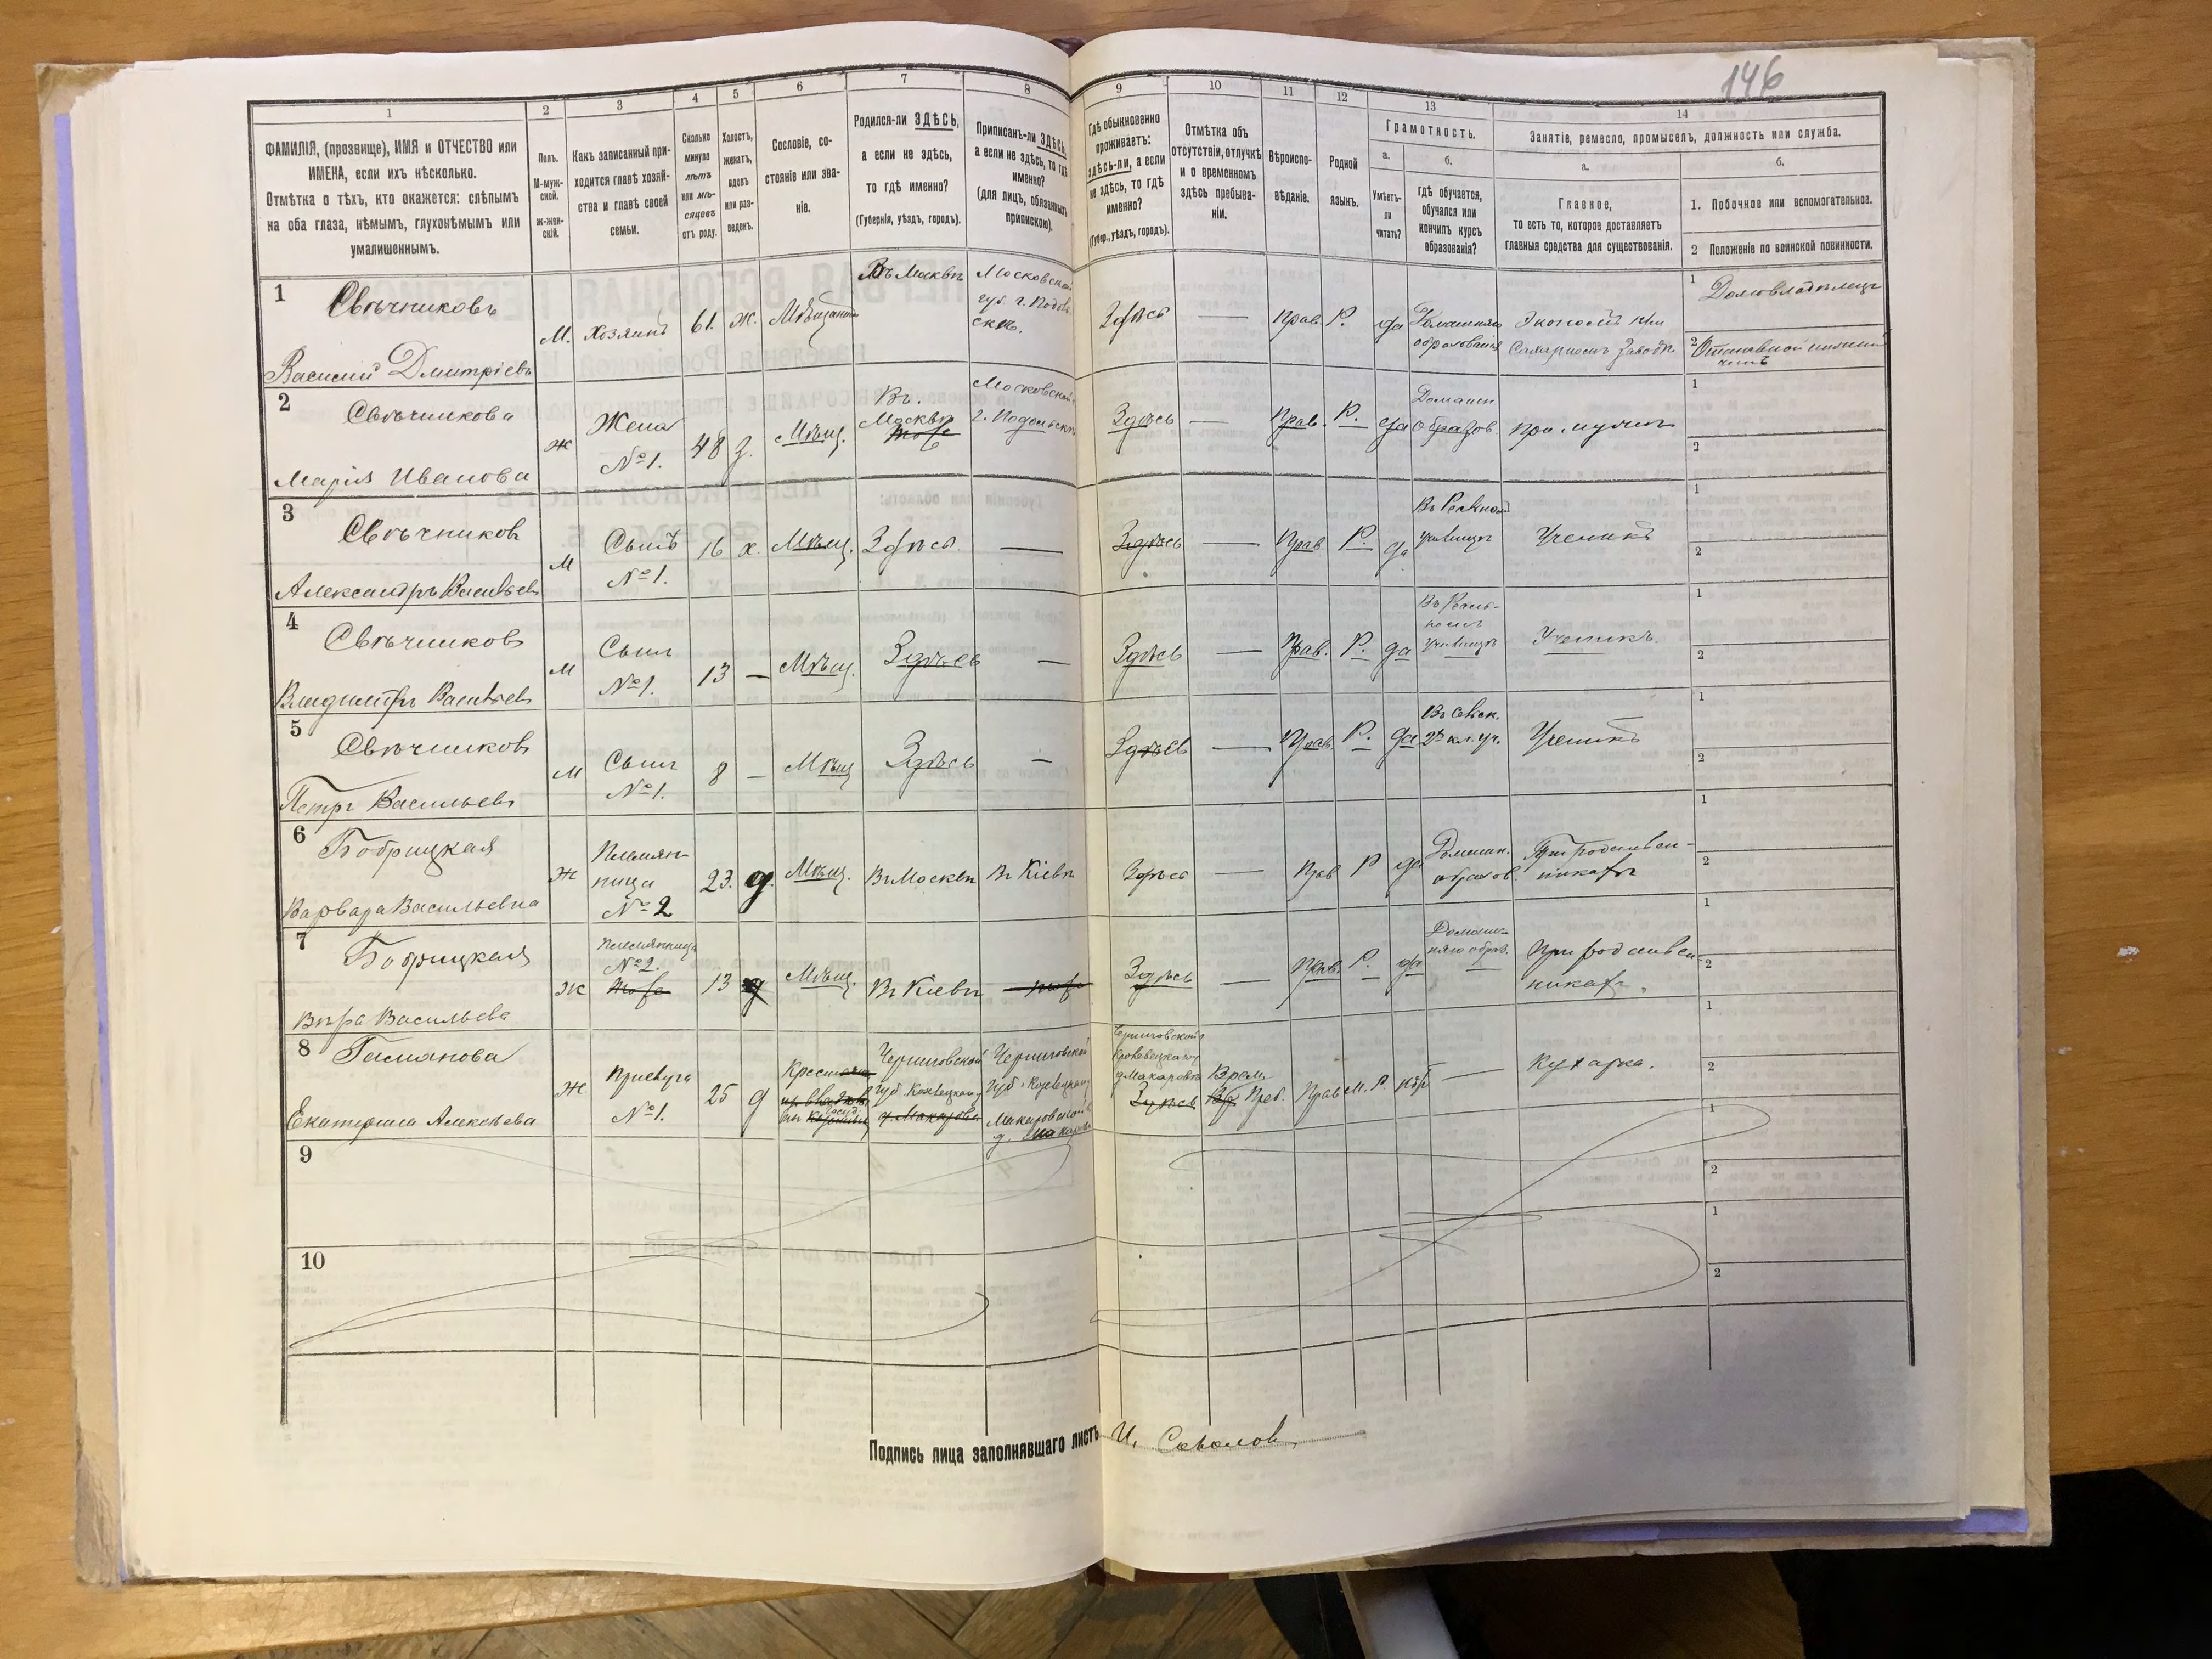 146
1
2
3
4
5
6
7
8
9
10
11
12
13
14
ФАМИЛІЯ, (прозвище), ИМЯ и ОТЧЕСТВО или
ИМЕНА, если ихъ нѣсколько.
Отмѣтка о тѣхъ, кто окажется: слѣпымъ
на оба глаза, нѣмымъ, глухонѣмымъ или
умалишеннымъ.
Полъ.
М-муж-
ской.
Ж-жен-
скій.
Какъ записанный при-
ходится главѣ хозяй-
ства и главѣ своей
семьи.
Сколько
минуло
лѣтъ
или мѣ-
сяцевъ
отъ роду.
Холостъ,
женатъ,
вдовъ
или раз-
веденъ.
Сословіе, со-
стояніе или зва-
ніе.
Родился-ли ЗДѢСЬ,
а если не здѣсь,
то гдѣ именно?
(Губернія, уѣздъ, городъ).
Приписанъ-ли ЗДѢСЬ,
а если не здѣсь, то гдѣ
именно?
(для лицъ, обязанныхъ
припискою).
Гдѣ обыкновенно
проживаетъ:
здѣсь-ли, а если
не здѣсь, то гдѣ
именно?
(Губер., уѣздъ, городъ).
Отмѣтка объ
отсутствіи, отлучкѣ
и о временномъ
здѣсь пребыва-
ніи.
Вѣроиспо-
вѣданіе.
Родной
языкъ.
Грамотность.
а.
Умѣетъ-
ли
читать?
б.
Гдѣ обучается,
обучался или
кончилъ курсъ
образованія?
Занятіе, ремесло, промыселъ, должность или служба.
а.
Главное,
то есть то, которое доставляетъ
главныя средства для существованія.
б.
1. Побочное или вспомогательное.
2 Положеніе по воинской повинности.
1
Свѣчниковъ
Василий Дмитріевъ
М.
Хозяинъ
61.
Ж.
Мѣщанинъ
Въ Москвѣ
Московской
губ. г. Подоль
скъ.
Здѣсь
—
Прав.
Р.
да
Домашняго
образованія
Экономъ при
Сахарномъ Заводѣ
1 Домовладѣлецъ
2 Отставной нижній
чинъ
2
Свѣчникова
Марія Иванова
Ж
Жена
№ 1.
48
З.
Мѣщ.
Въ.
Москвѣ
тоже
Московской
г. Подольскъ
Здѣсь
—
Прав.
Р.
да
Домашн.
образов.
При мужѣ
1
2
3
Свѣчников
Александръ Васильев
М
Сынъ
№ 1.
16
х.
Мѣщ.
Здѣсь
—
Здѣсь
—
Прав
Р.
да
Въ Реальном
училищѣ
Ученикъ
1
2
4
Свѣчников
Владиміръ Васильев
М
Сынъ
№ 1.
13
—
Мѣщ.
Здѣсь
—
Здѣсь
—
Прав.
Р.
да
Въ Реаль-
номъ
училищѣ
Ученикъ.
1
2
5
Свѣчников
Петръ Васильев
М
Сынъ
№ 1.
8
—
Мѣщ
Здѣсь
—
Здѣсь
—
Прав.
Р.
да
2х кл. уч.
Ученикъ
1
2
6
Бобрицкая
Варвара Васильевна
Ж
Племян-
ница
№ 2
23.
д.
Мѣщ.
Въ Москвѣ
Въ Кіевѣ
Здѣсь
—
Прав
Р
да
Домашн.
образов.
При родствен-
никахъ
1
2
7
Бобрицкая
Вѣра Васильева
Ж
Племянница
№ 2.
тоже
13
д
Мѣщ.
Въ Кіевѣ
тоже
Здѣсь
—
Прав.
Р.
да
Домаш-
няго образ.
При родствен-
никахъ.
1
2
8
Екатерина Алексѣева
Ж
Прислуга
№ 1.
25
д
Черниговской
губ.
д. Макаровк
Черниговской
губ.
Макаровской
д. Макаров
Черниговской
Кролевецкаго у
д. Макаровк
Здѣсь
Врем.
Преб.
Прав.
М. Р.
нѣт
—
Кухарка.
1
2
9
1
2
10
1
2
Подпись лица заполнявшаго листъ И. Соколов